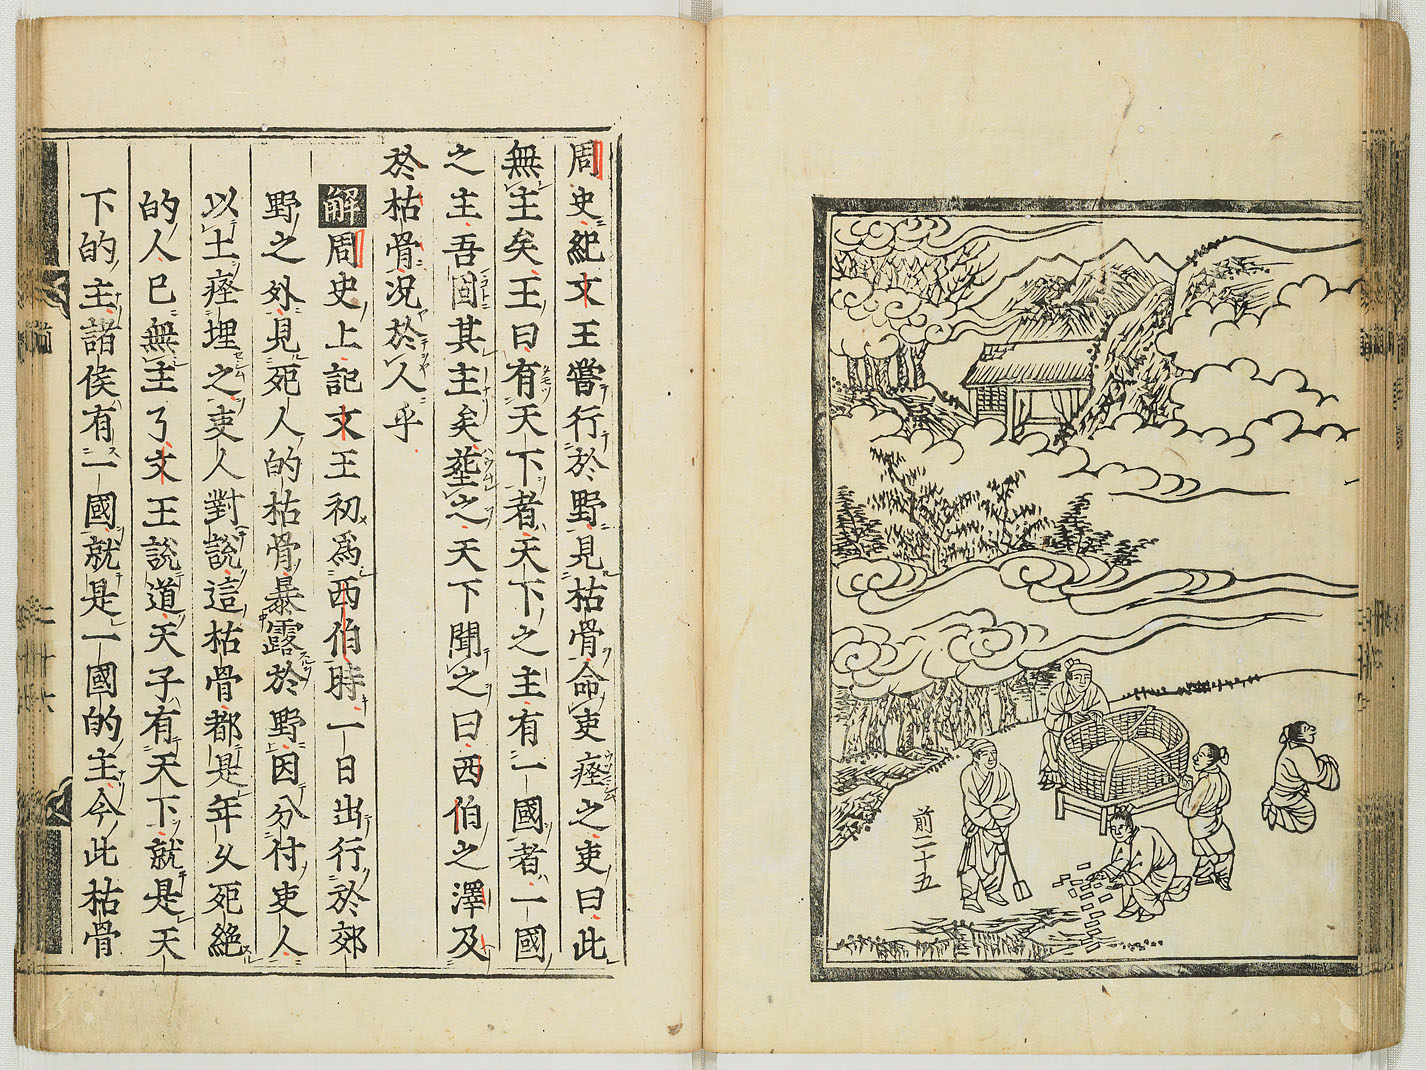 前二十五
周史紀文王嘗行於野見枯骨命吏瘞之吏曰此
無主矣王曰有天下者天下之主有一國者一國
之主吾固其主矣葬之天下聞之曰西伯之澤及
於枯骨况於人乎
解周史上記文王初爲西伯時一日出行於郊
野之外見死人的枯骨暴露於野因分付吏人
以土瘞埋之吏人對說這枯骨都是年久死絕
的人已無主了文王說道天子有天下就是天
下的主諸侯有一國就是一國的主今此枯骨